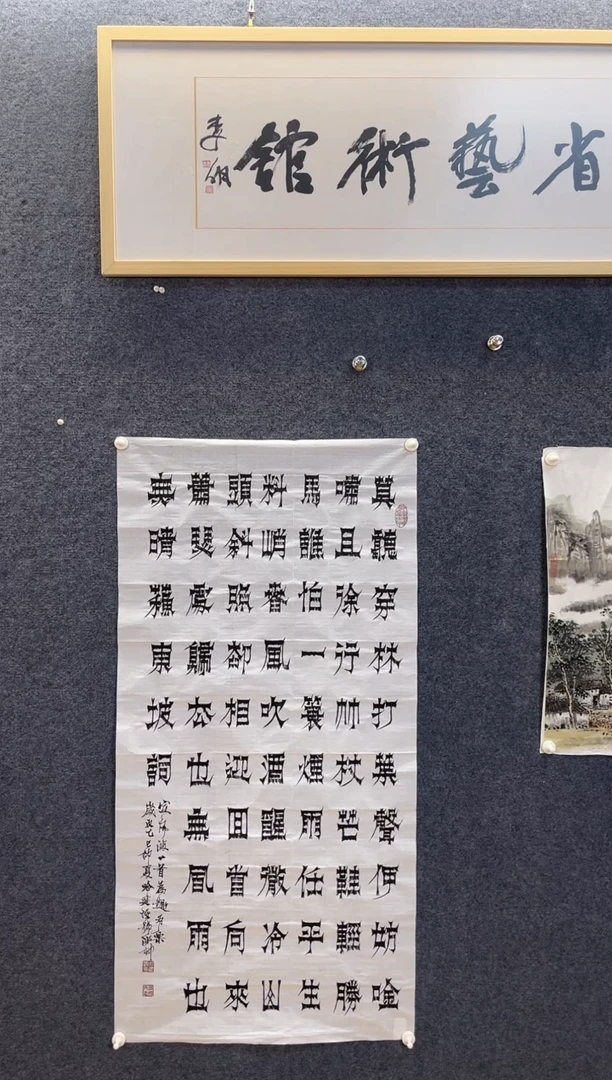 省藝術館
莫聽穿林打葉聲何妨唫
嘯且徐行竹杖芒鞋輕勝
馬誰怕一簑煙雨任平生
料峭春風吹酒醒微冷山
頭斜照卻相迎回首向來
蕭瑟處歸去也無風雨也
無晴蘇東坡詞
定風波一首
歲次乙巳仲夏